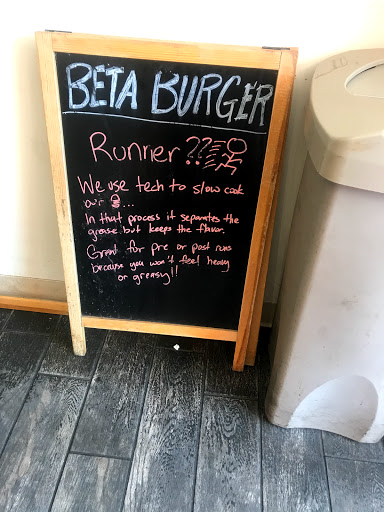 BETA BURGER
Runner??
We use tech to slow cook
our ...
In that process it separates the
grease but keeps the flavor.
Great for pre or post runs
because you won't feel heavy
or greasy!!